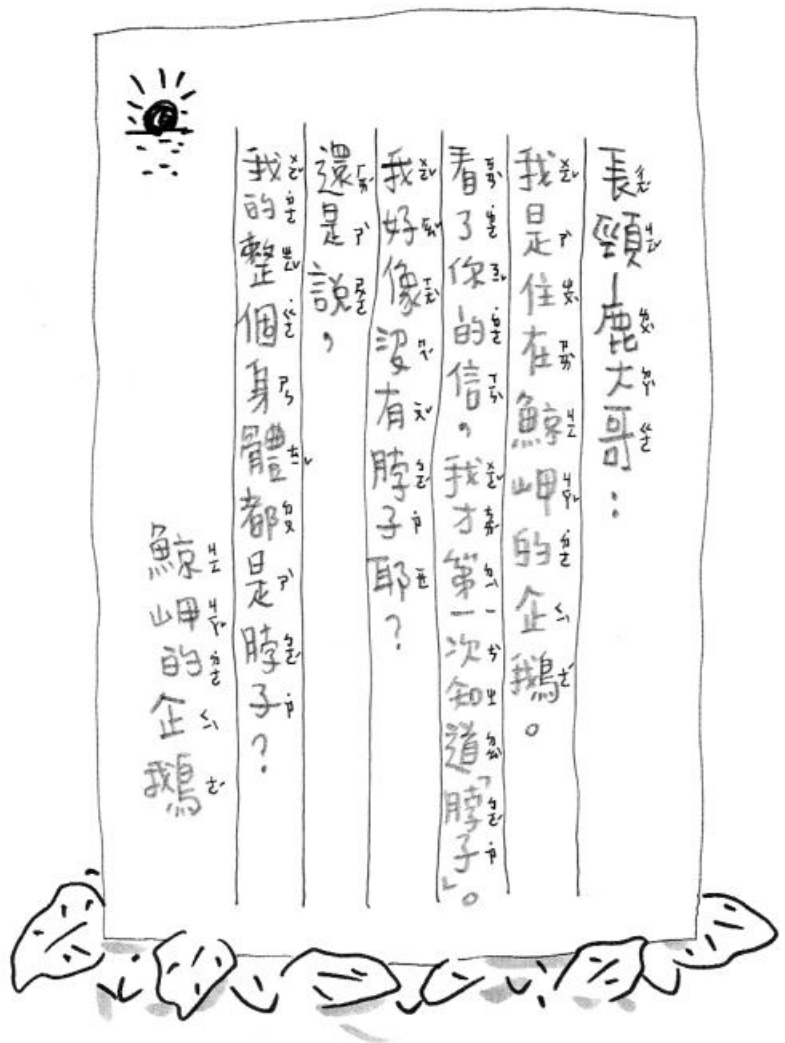 長頸鹿大哥：
我是住在鯨岬的企鵝。
看了你的信，我才第一次知道「脖子」。
我好像沒有脖子耶？
還是說，
我的整個身體都是脖子？
鯨岬的企鵝